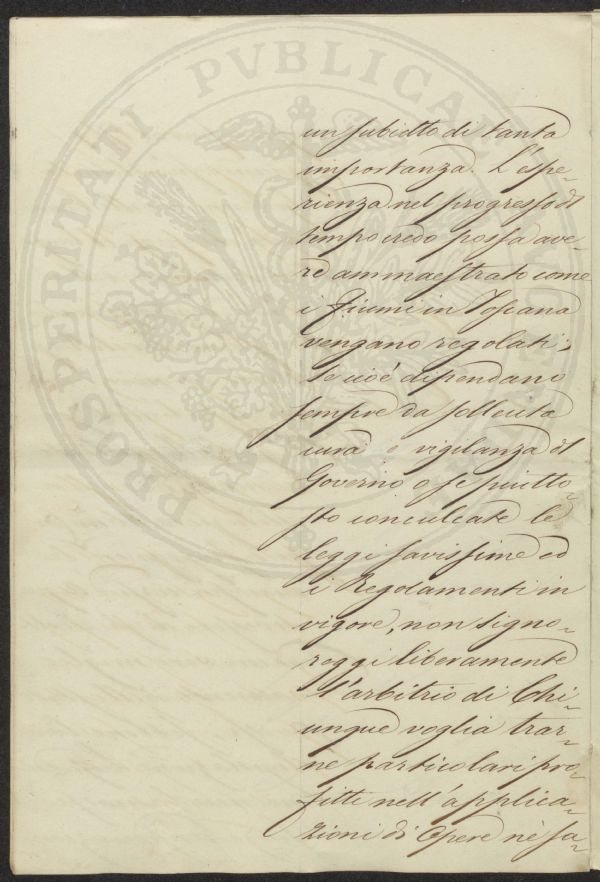 un subietto di tanta
importanza. L'espe-
rienza nel progresso di
tempo credo possa ave-
re ammaestrato come
i Fiumi in Toscana
vengano regolati;
se cioè dipendano
sempre da sollecita
cura e vigilanza di
Governo o se piutto-
sto conculcate le
leggi savissime ed
i Regolamenti in
vigore, non signo-
reggi liberamente
l'arbitrio di Chi-
unque voglia trar-
ne particolari pro-
fitti nell'applica-
zioni di Opere nè fa-
PROSPERITATI PVBLICAE